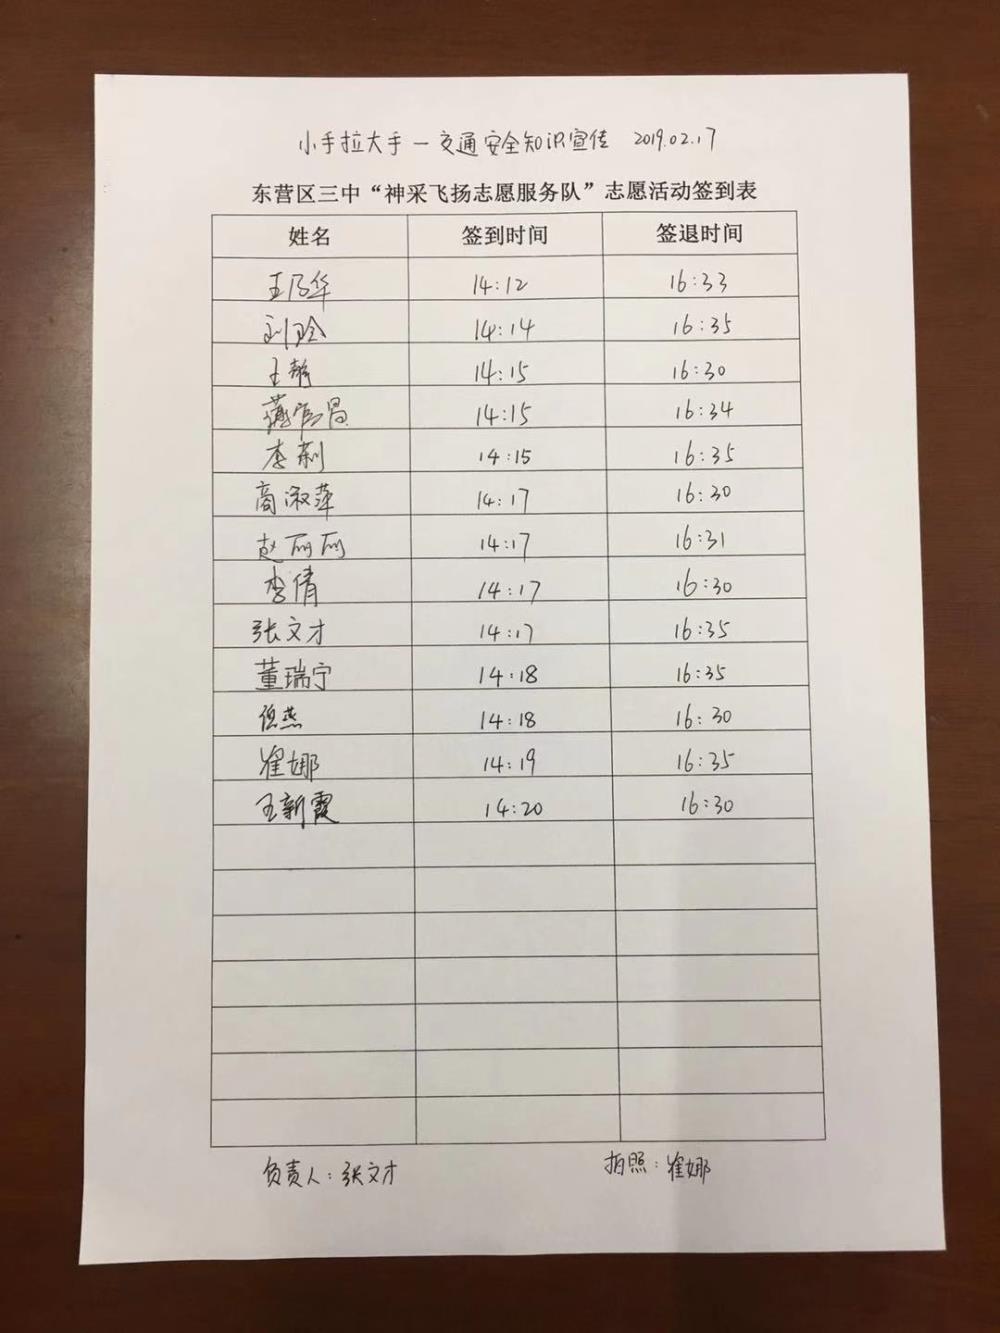 小手拉大手—交通安全知识宣传 2019.02.17
东营区三中“神采飞扬志愿服务队”志愿活动签到表
姓名 签到时间 签退时间
王乃华 14:12 16:33
刘玲 14:14 16:35
王静 14:15 16:30
14:15 16:34
李莉 14:15 16:35
高淑萍 14:17 16:30
赵丽丽 14:17 16:31
李倩 14:17 16:30
张文才 14:17 16:35
董瑞宁 14:18 16:35
燕 14:18 16:30
崔娜 14:19 16:35
王新霞 14:20 16:30
负责人：张文才 拍照：崔娜